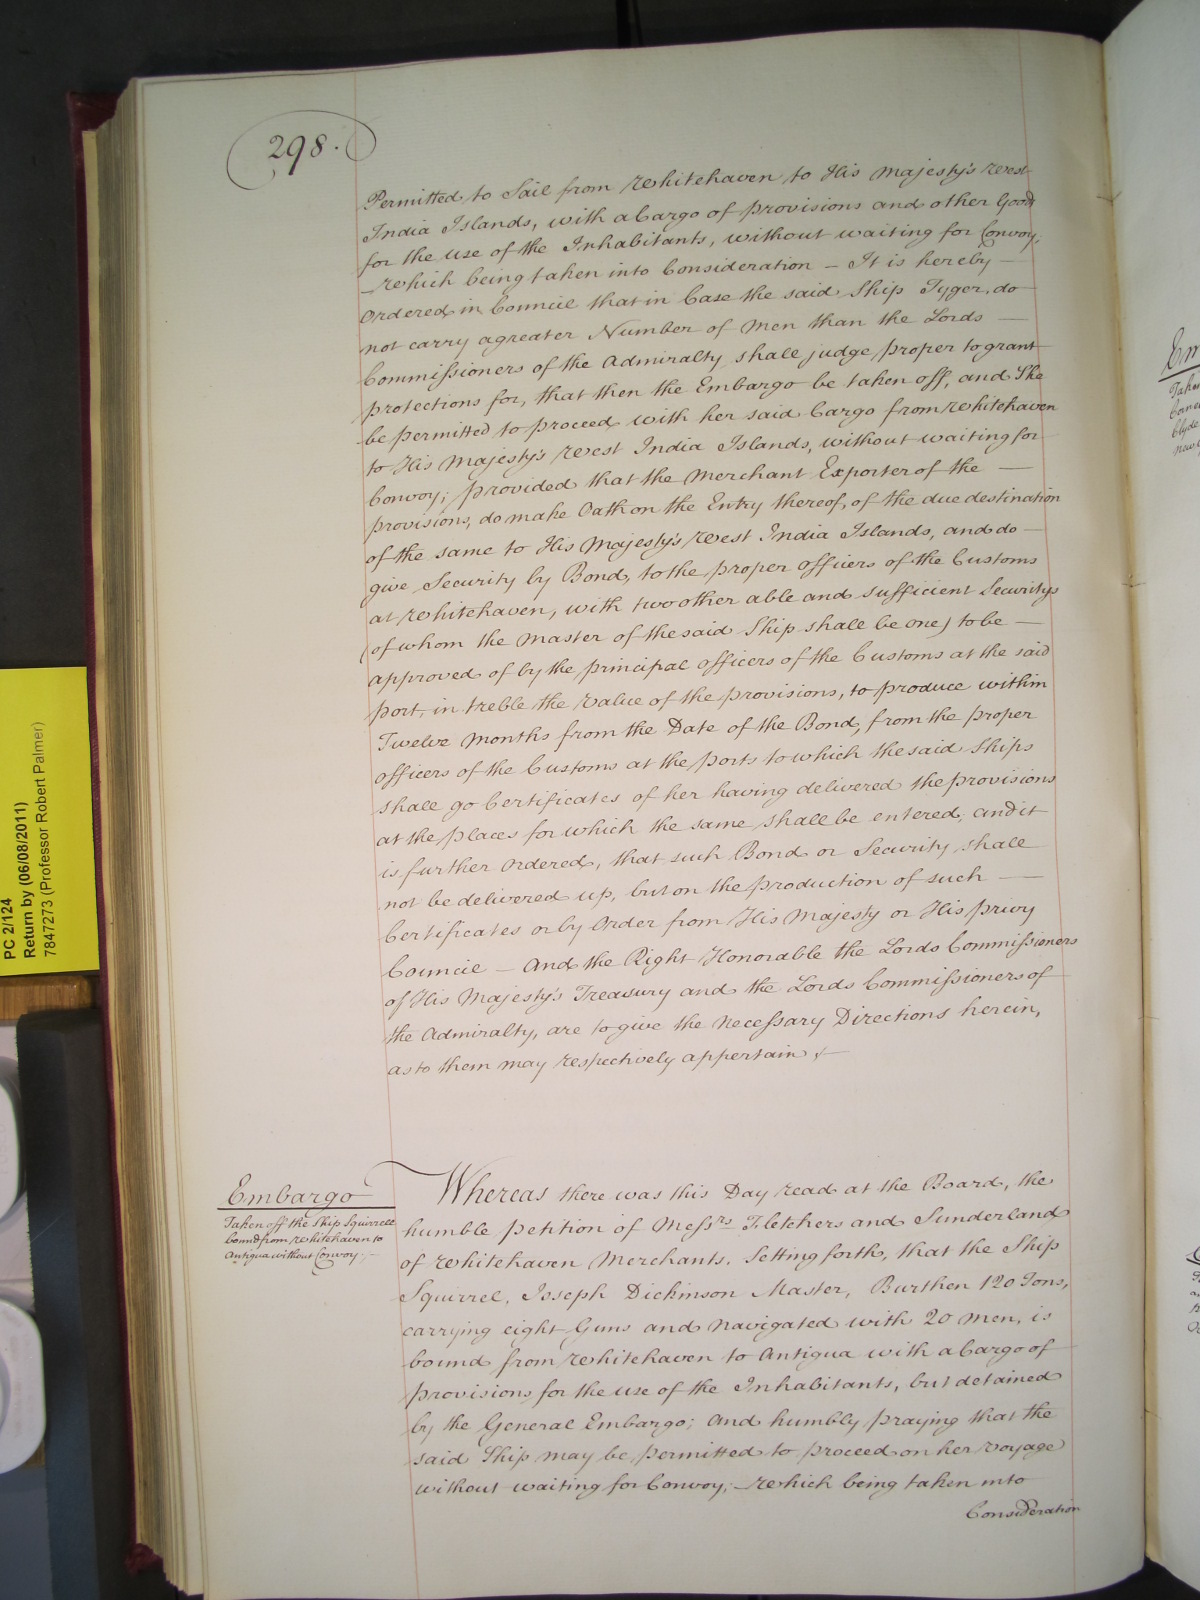 298.
Permitted to Sail from Whitehaven to His Majesty's West
India Islands, with a Cargo of Provisions and other Goods
for the use of the Inhabitants, without waiting for Convoy;
Which being taken into Consideration — It is hereby —
Ordered in Council that in Case the said Ship Tyger, do
not carry a greater Number of Men than the Lords —
Commissioners of the Admiralty shall judge proper to grant
protections for, that then the Embargo be taken off, and She
be permitted to proceed with her said Cargo from Whitehaven
to His Majesty's West India Islands, without waiting for
Convoy; provided that the Merchant Exporter of the —
provisions, do make Oath on the Entry thereof, of the due destination
of the same to His Majesty's West India Islands, and do —
give Security by Bond, to the proper Officers of the Customs
at Whitehaven, with two other able and sufficient Securitys
(of whom the Master of the said Ship shall be one) to be —
approved of by the principal Officers of the Customs at the said
port, in treble the Value of the provisions, to produce within
Twelve Months from the Date of the Bond, from the proper
Officers of the Customs at the ports to which the said Ships
shall go Certificates of her having delivered the provisions
at the places for which the same shall be entered; and it
is further Ordered, that such Bond or Security shall
not be delivered up, but on the production of such —
Certificates or by Order from His Majesty or His privy
Council — And the Right Honorable the Lords Commissioners
of His Majesty's Treasury and the Lords Commissioners of
the Admiralty, are to give the necessary Directions herein,
as to them may respectively appertain
Embargo
Taken off the Ship Squirrell
bound from Whitehaven to
Antigua without Convoy; —
Whereas there was this Day read at the Board, the
humble petition of Mess:rs Fletchers and Sunderland
of Whitehaven Merchants. Setting forth, that the Ship
Squirrel, Joseph Dickinson Master, Burthen 120 Tons,
carrying eight Guns and navigated with 20 Men, is
bound from Whitehaven to Antigua with a Cargo of
provisions for the use of the Inhabitants, but detained
by the General Embargo; And humbly praying that the
said Ship may be permitted to proceed on her Voyage
without waiting for Convoy; Which being taken into
Consideration
PC 2/124
Return by (06/08/2011)
7847273 (Professor Robert Palmer)